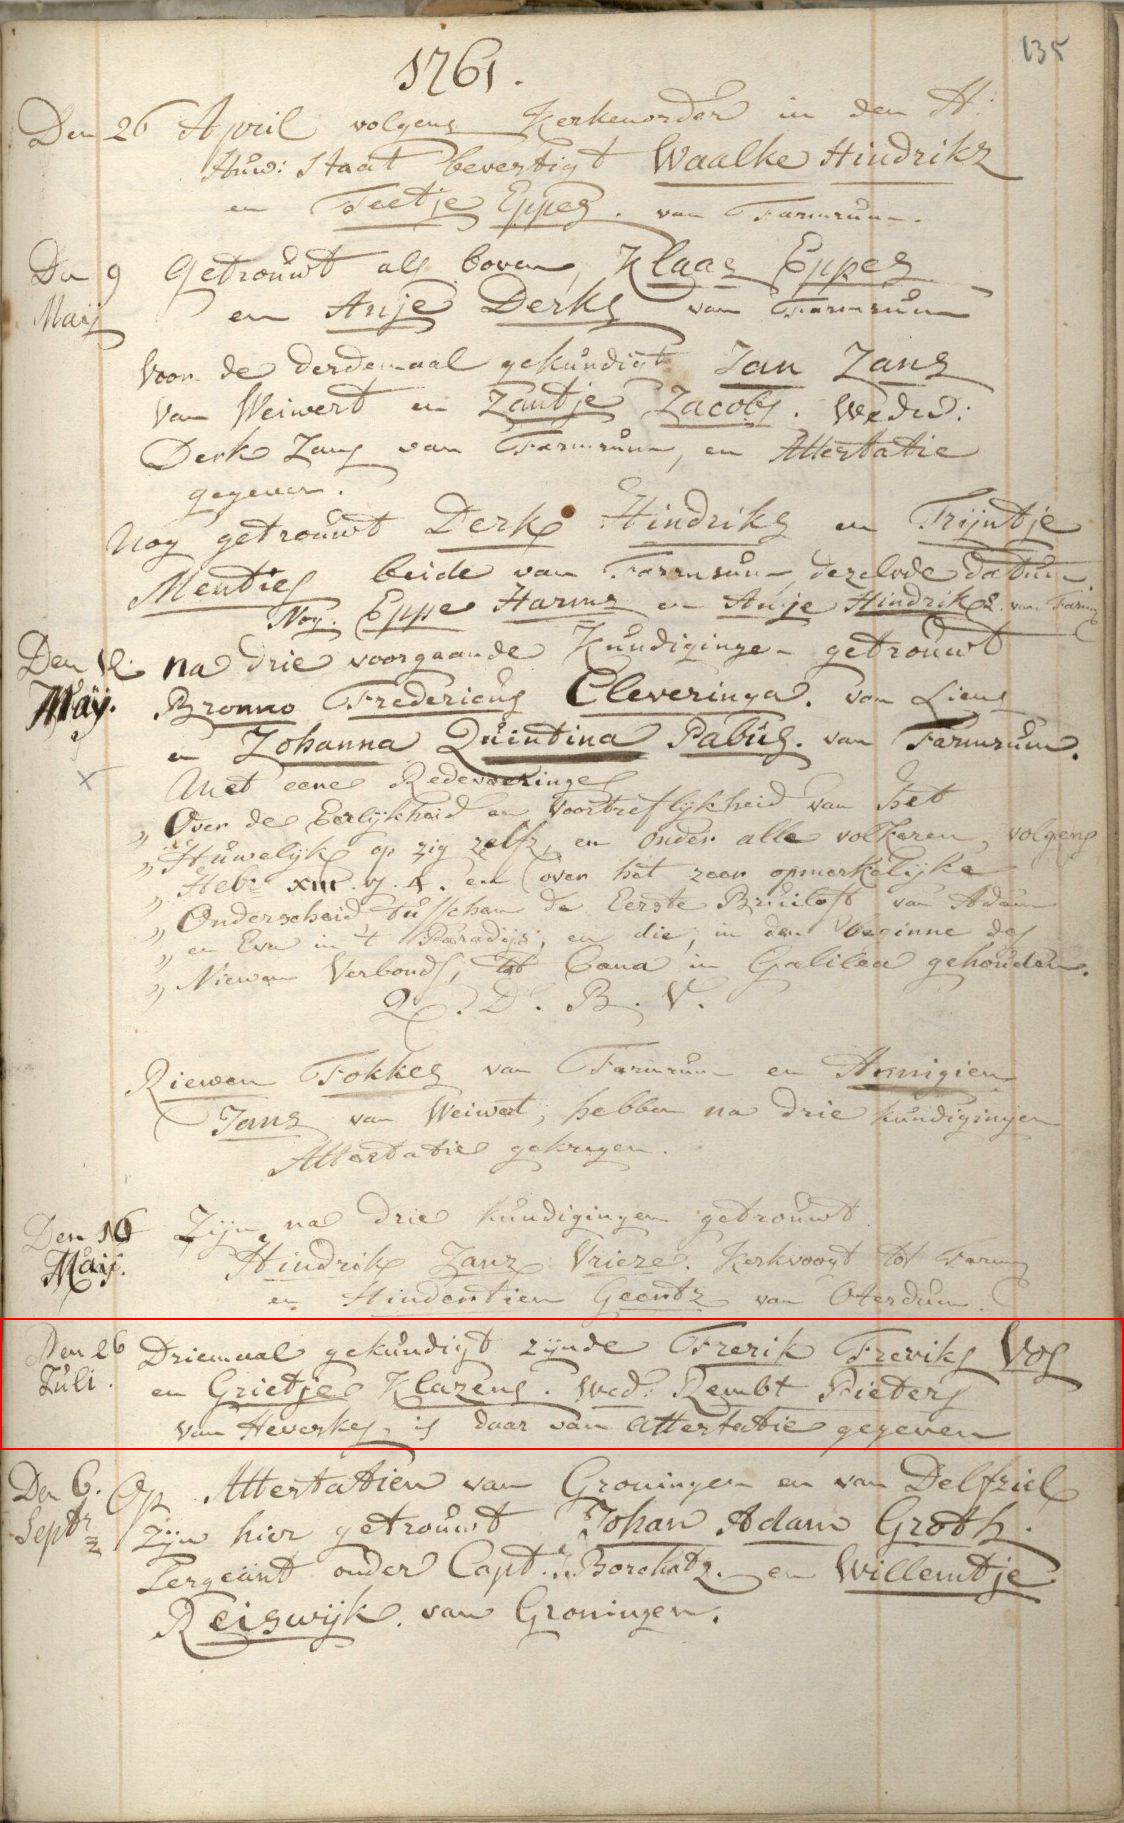 135
1761.
Den 26 April volgens Kerkenorder in den H:
Huw: Staat bevestigt Waalke Hindriks
en Feetje Eppes. van Farmsum.
Den 9 Getrouwt als boven, Klaas Eppes
Maij en Anje Derks van Farmsum
Voor de derdemaal gekundigt Jan Jans
van Weiwert en Jantje Jacobs. Wedw:
Derk Jans van Farmsum, en Attestatie
gegeven.
Nog getrouwt Derk Hindriks en Trijntje
Menties beide van Farmsum, dezelvde datum.
Nog. Eppe Harms en Anje Hindriks. van Farms
Den 12. na drie voorgaande Kundigingen getrouwt
Maij. Bronno Fredericus Cleveringa. van Liens
en Johanna Quintina Pabus. van Farmsum.
Met eene Redevoeringe
„ Over de Eerlijkheid en voortreflijkheid van het
„ Huwelijk op zig zelfs, en onder alle volkeren, volgens
„ Hebr XIII. v. 4. en over het zeer opmerkelijke
„ Onderscheid tusschen de Eerste Bruiloft van Adam
„ en Eva in 't Paradijs, en die, in den beginne des
„ Niewen Verbonds, tot Cana in Galilea gehouden.
Q. D. B. V.
Riewen Fokkes van Farmsum en Annigien
Jans van Weiwert, hebben na drie kundigingen
Attestatie gekregen.
Den 16 Zijn na drie kundigingen getrouwt
Maij. Hindrik Janz Vrieze. Kerkvoogt tot Farms
en Hindertien Geertz van Oterdum.
Den 26 Driemaal gekundigt zijnde Frerik Freriks Vos
Juli. en Grietje Klazens. Wed: Rembt Pieters
van Heveskes, is daar van attestatie gegeven
Den 6. Op Attestatien van Groningen en van Delfziel
Septr zijn hier getrouwt Johan Adam Groth.
Sergeant onder Capt. Borchatz. en Willemtje
Reiswijk. van Groningen.